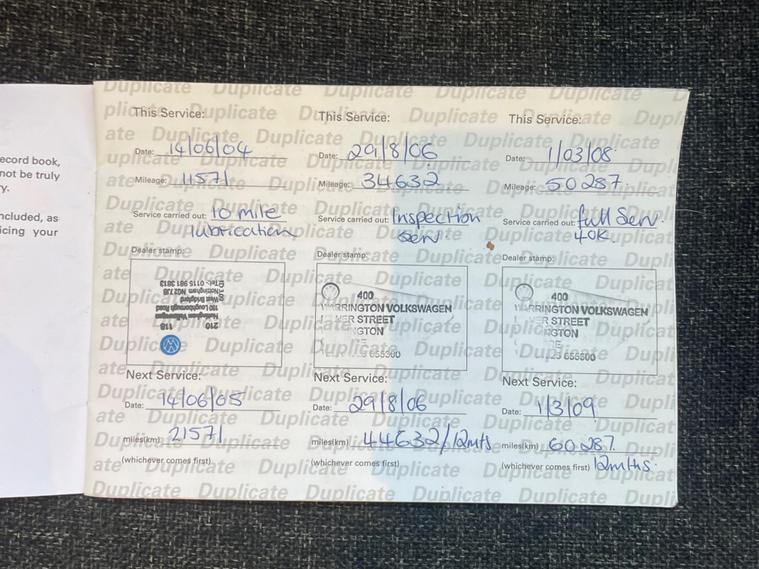 ecord book,
not be truly
y.
ncluded, as
icing your
Duplicate Duplicate Duplicate Duplicate Duplicate
This Service:
Date: 14/06/04
Mileage: 11571
Service carried out: 10 mile
lubrication
Dealer stamp:
210 118
Nottingham Volkswagen
190 Loughborough Road
West Bridgford
Nottingham NG2 7JB
Tel: 0115 981 3813
Next Service:
Date: 14/06/05
miles(km) 21571
(whichever comes first)
This Service:
Date: 29/8/06
Mileage: 34632
Service carried out: Inspection
serv
Dealer stamp:
400
RRINGTON VOLKSWAGEN
ER STREET
NGTON
Next Service:
Date: 29/8/06
miles(km) 44632/12mts
(whichever comes first)
This Service:
Date: 1/03/08
Mileage: 50287
Service carried out: full Serv.
40K.
Dealer stamp:
400
RRINGTON VOLKSWAGEN
ER STREET
NGTON
Next Service:
Date: 1/3/09
miles(km) 60287.
(whichever comes first) 12mths.
Duplicate Duplicate Duplicate Duplicate Duplicate